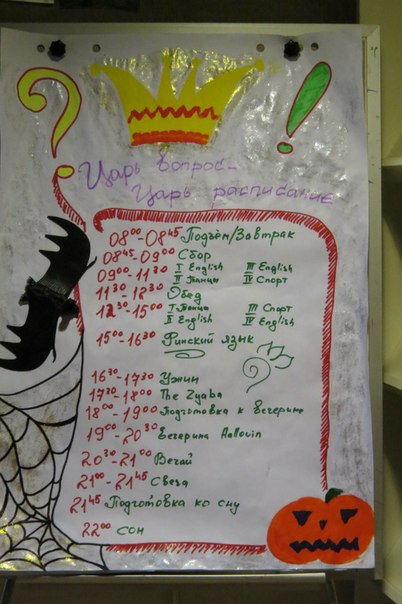 ? !
Царь вопрос-
Царь расписание
08⁰⁰-08⁴⁵ Подъём/Завтрак
08⁴⁵-09⁰⁰ Сбор
09⁰⁰-11³⁰ I English III English
II Танцы IV Спорт
11³⁰-12³⁰ Обед
12³⁰-15⁰⁰ I Танцы III Спорт
II English IV English
15⁰⁰-16³⁰ Финский язык
16³⁰-17³⁰ Ужин
17³⁰-18⁰⁰ The Zyaba
18⁰⁰-19⁰⁰ Подготовка к вечерине
19⁰⁰-20³⁰ Вечерина Hallouin
20³⁰-21⁰⁰ Вечай
21⁰⁰-21⁴⁵ Свеча
21⁴⁵ Подготовка ко сну
22⁰⁰ сон